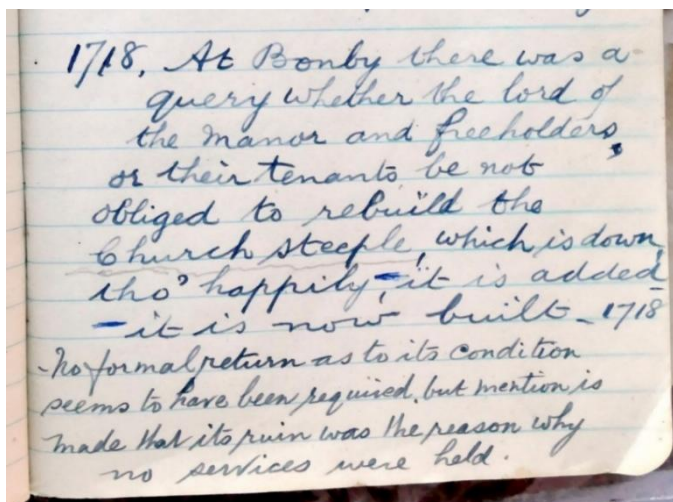 1718. At Bonby there was a
query whether the lord of
the manor and freeholders,
or their tenants be not
obliged to rebuild the
Church steeple, which is down,
tho' happily, - it is added
- it is now built - 1718
- No formal return as to its condition
seems to have been required, but mention is
made that its ruin was the reason why
no services were held.